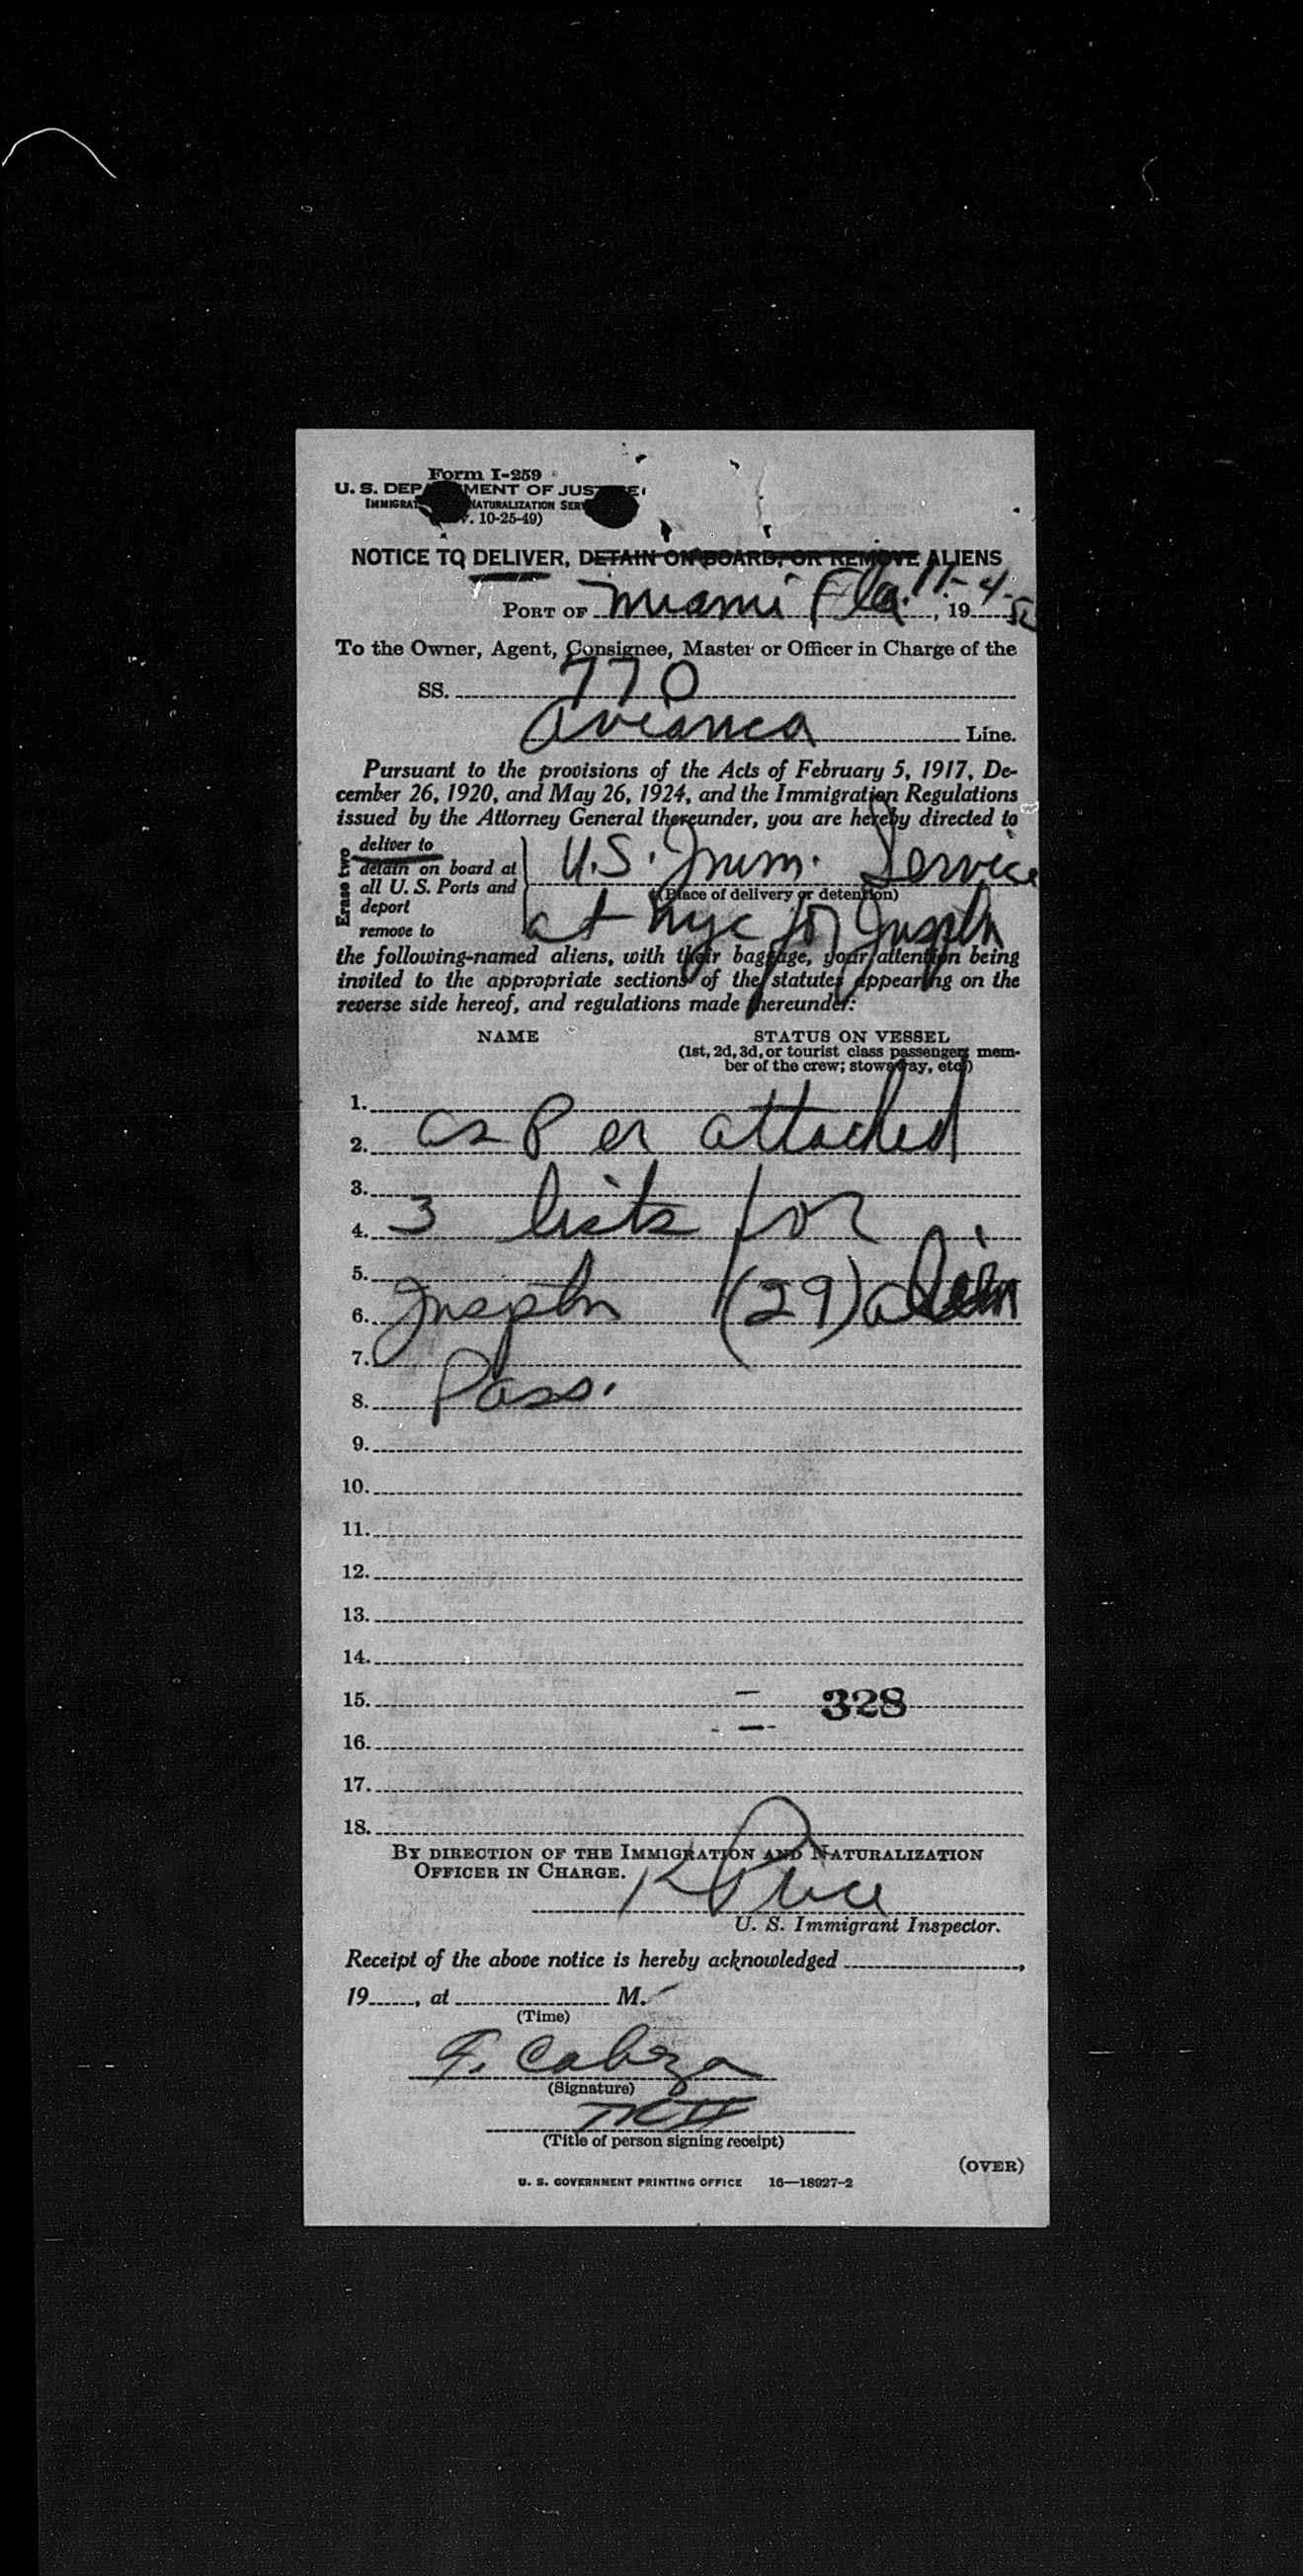 Form I-259
U. S. DEPARTMENT OF JUSTICE
IMMIGRATION AND NATURALIZATION SERVICE
(REV. 10-25-49)
NOTICE TO DELIVER, DETAIN ON BOARD, OR REMOVE ALIENS
PORT OF Miami Fla. 11-4-, 19
To the Owner, Agent, Consignee, Master or Officer in Charge of the
SS. 770
Avianca Line.
Pursuant to the provisions of the Acts of February 5, 1917, De-
cember 26, 1920, and May 26, 1924, and the Immigration Regulations
issued by the Attorney General thereunder, you are hereby directed to
Erase two
deliver to
detain on board at
all U. S. Ports and
deport
remove to
U.S. Imm. Service
(Place of delivery or detention)
at nyc for Insptn
the following-named aliens, with their baggage, your attention being
invited to the appropriate sections of the statutes appearing on the
reverse side hereof, and regulations made thereunder:
NAME STATUS ON VESSEL
(1st, 2d, 3d, or tourist class passenger; mem-
ber of the crew; stowaway, etc.)
1.
2. as Per attached
3.
4. 3 lists for
5.
6. Insptn (29) alien
7.
8. Pass.
9.
10.
11.
12.
13.
14.
15. 328
16.
17.
18.
BY DIRECTION OF THE IMMIGRATION AND NATURALIZATION
OFFICER IN CHARGE.
K Price
U. S. Immigrant Inspector.
Receipt of the above notice is hereby acknowledged ,
19 , at M.
(Time)
(Signature)
(Title of person signing receipt)
(OVER)
U. S. GOVERNMENT PRINTING OFFICE 16—18927-2